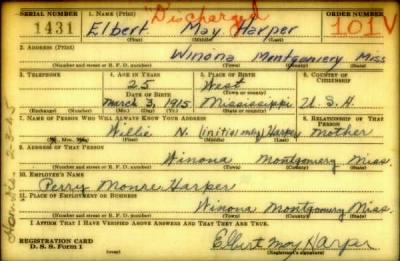 "Discharged
SERIAL NUMBER 1. NAME (Print) ORDER NUMBER
1431 Elbert May Harper 101V
(First) (Middle) (Last)
2. ADDRESS (Print)
Winona Montgomery Miss
(Number and street or R. F. D. number) (Town) (County) (State)
3. TELEPHONE 4. AGE IN YEARS 5. PLACE OF BIRTH 6. COUNTRY OF CITIZENSHIP
25 West
DATE OF BIRTH (Town or county)
March 3, 1915 Mississippi U. S. A.
(Exchange) (Number) (Mo.) (Day) (Yr.) (State or country)
7. NAME OF PERSON WHO WILL ALWAYS KNOW YOUR ADDRESS 8. RELATIONSHIP OF THAT PERSON
Willie N. (initial may) Harper Mother
(Mr., Mrs., Miss) (First) (Middle) (Last)
9. ADDRESS OF THAT PERSON
Winona Montgomery Miss.
(Number and street or R. F. D. number) (Town) (County) (State)
10. EMPLOYER'S NAME
Perry Monre Harper
11. PLACE OF EMPLOYMENT OR BUSINESS
Winona Montgomery Miss.
(Number and street or R. F. D. number) (Town) (County) (State)
I AFFIRM THAT I HAVE VERIFIED ABOVE ANSWERS AND THAT THEY ARE TRUE.
REGISTRATION CARD
D. S. S. Form 1 Elbert May Harper
(Registrant's signature)